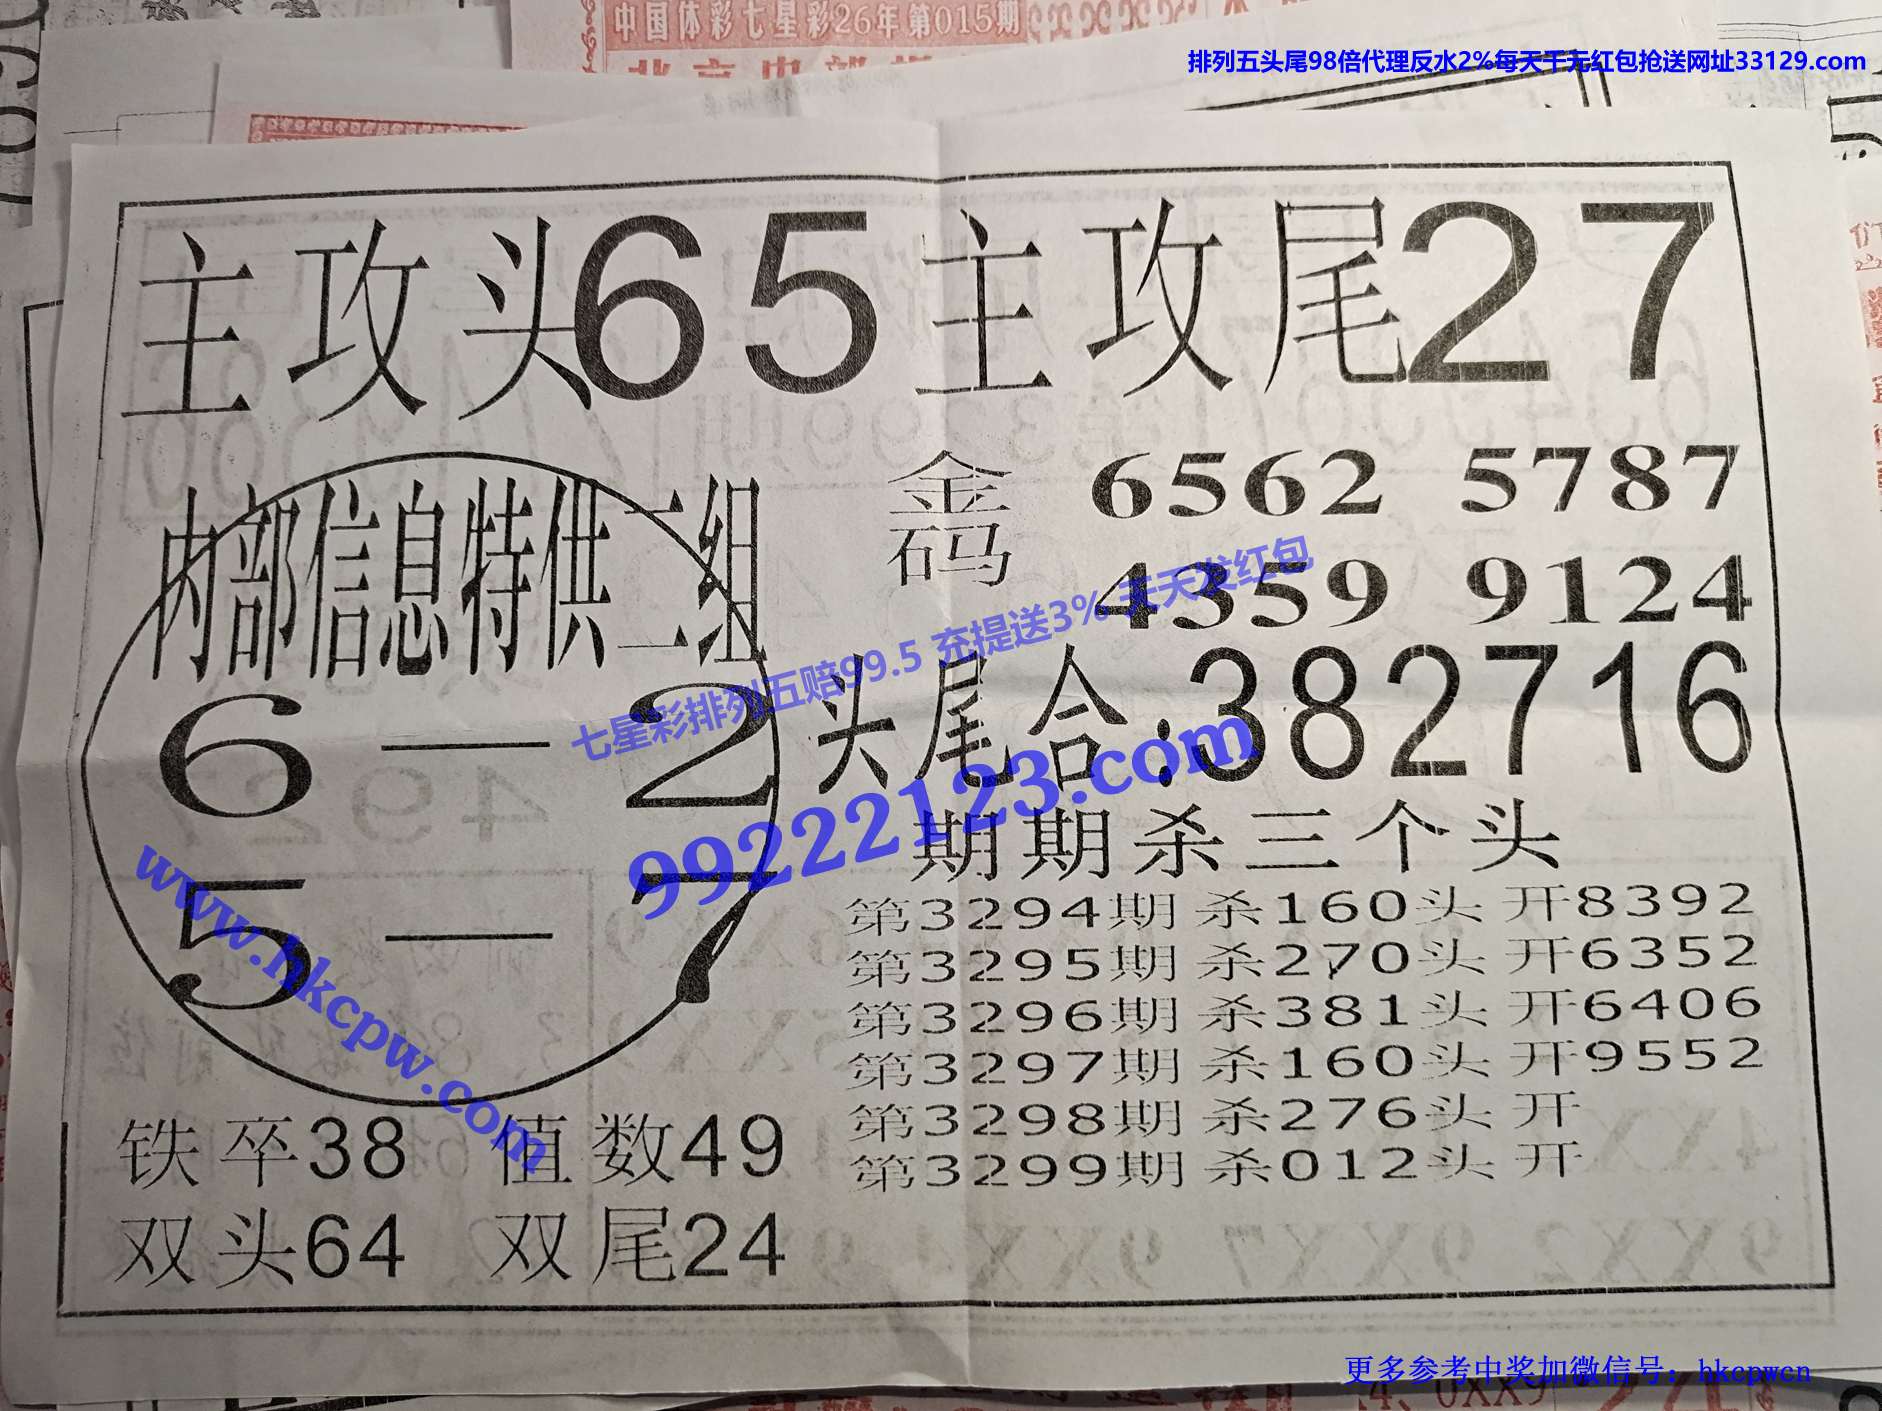 中国体彩七星彩26年第015期
排列五头尾98倍代理反水2%每天千元红包抢送网址33129.com
主攻头65 主攻尾27
内部信息特供二组
6—2
5—7
金码 6562 5787
4359 9124
头尾合:382716
期期杀三个头
第3294期 杀160头 开8392
第3295期 杀270头 开6352
第3296期 杀381头 开6406
第3297期 杀160头 开9552
第3298期 杀276头 开
第3299期 杀012头 开
铁卒38 值数49
双头64 双尾24
七星彩排列五赔99.5 充提送3% 天天发红包
99222123.com
www.hkcpw.com
更多参考中奖加微信号：hkcpwcn